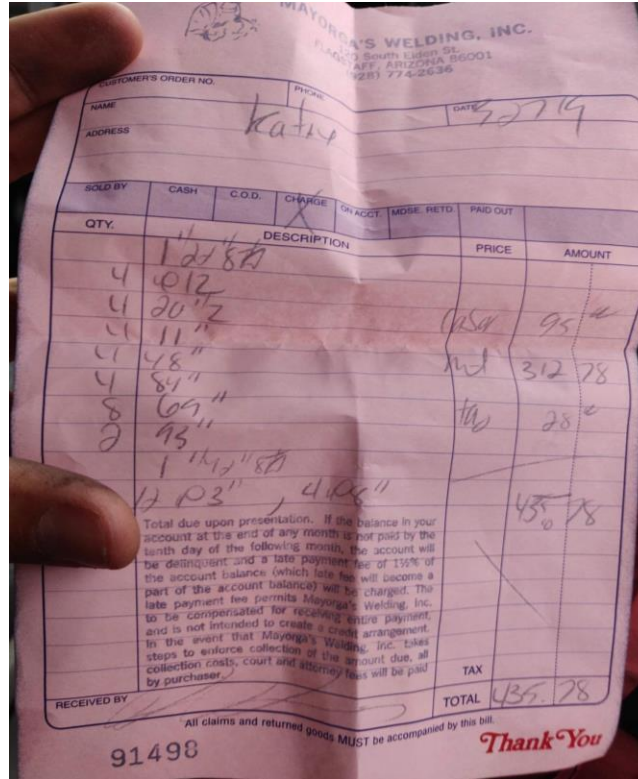 MAYORGA'S WELDING, INC.
FLAGSTAFF, ARIZONA 86001
(928) 774-2636
CUSTOMER'S ORDER NO. PHONE
NAME Kathy DATE
ADDRESS
SOLD BY CASH C.O.D. CHARGE ON ACCT. MDSE. RETD. PAID OUT
QTY. DESCRIPTION PRICE AMOUNT
4
4 20"
4 11" 95
4 48" 312 78
4 84"
8 69" 28
2 93"
435 78
Total due upon presentation. If the balance in your
account at the end of any month is not paid by the
tenth day of the following month, the account will
be delinquent and a late payment fee of 1½% of
the account balance (which late fee will become a
part of the account balance) will be charged. The
late payment fee permits Mayorga's Welding, Inc.
to be compensated for receiving entire payment,
and is not intended to create a credit arrangement.
In the event that Mayorga's Welding, Inc. takes
steps to enforce collection of the amount due, all
collection costs, court and attorney fees will be paid
by purchaser.
TAX
RECEIVED BY TOTAL 435.78
All claims and returned goods MUST be accompanied by this bill.
91498 Thank You